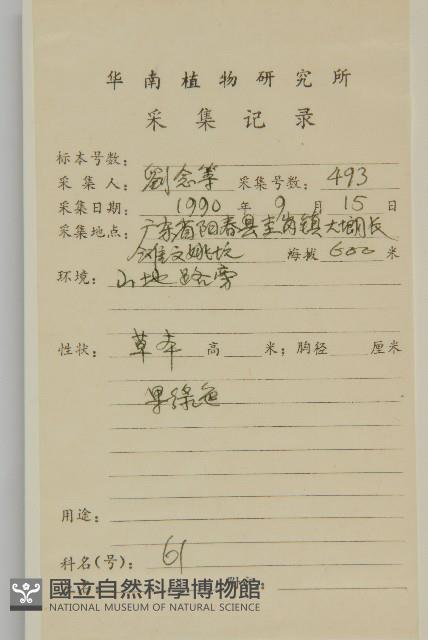 华南植物研究所
采集记录
标本号数：
采集人：劉念等 采集号数：493
采集日期：1990年9月15日
采集地点：广东省阳春县圭岗镇大塱长
海拔 600 米
环境：山地路旁
性状：草本 高 米；胸径 厘米
果綠色
用途：
科名(号)：61
國立自然科學博物館
NATIONAL MUSEUM OF NATURAL SCIENCE